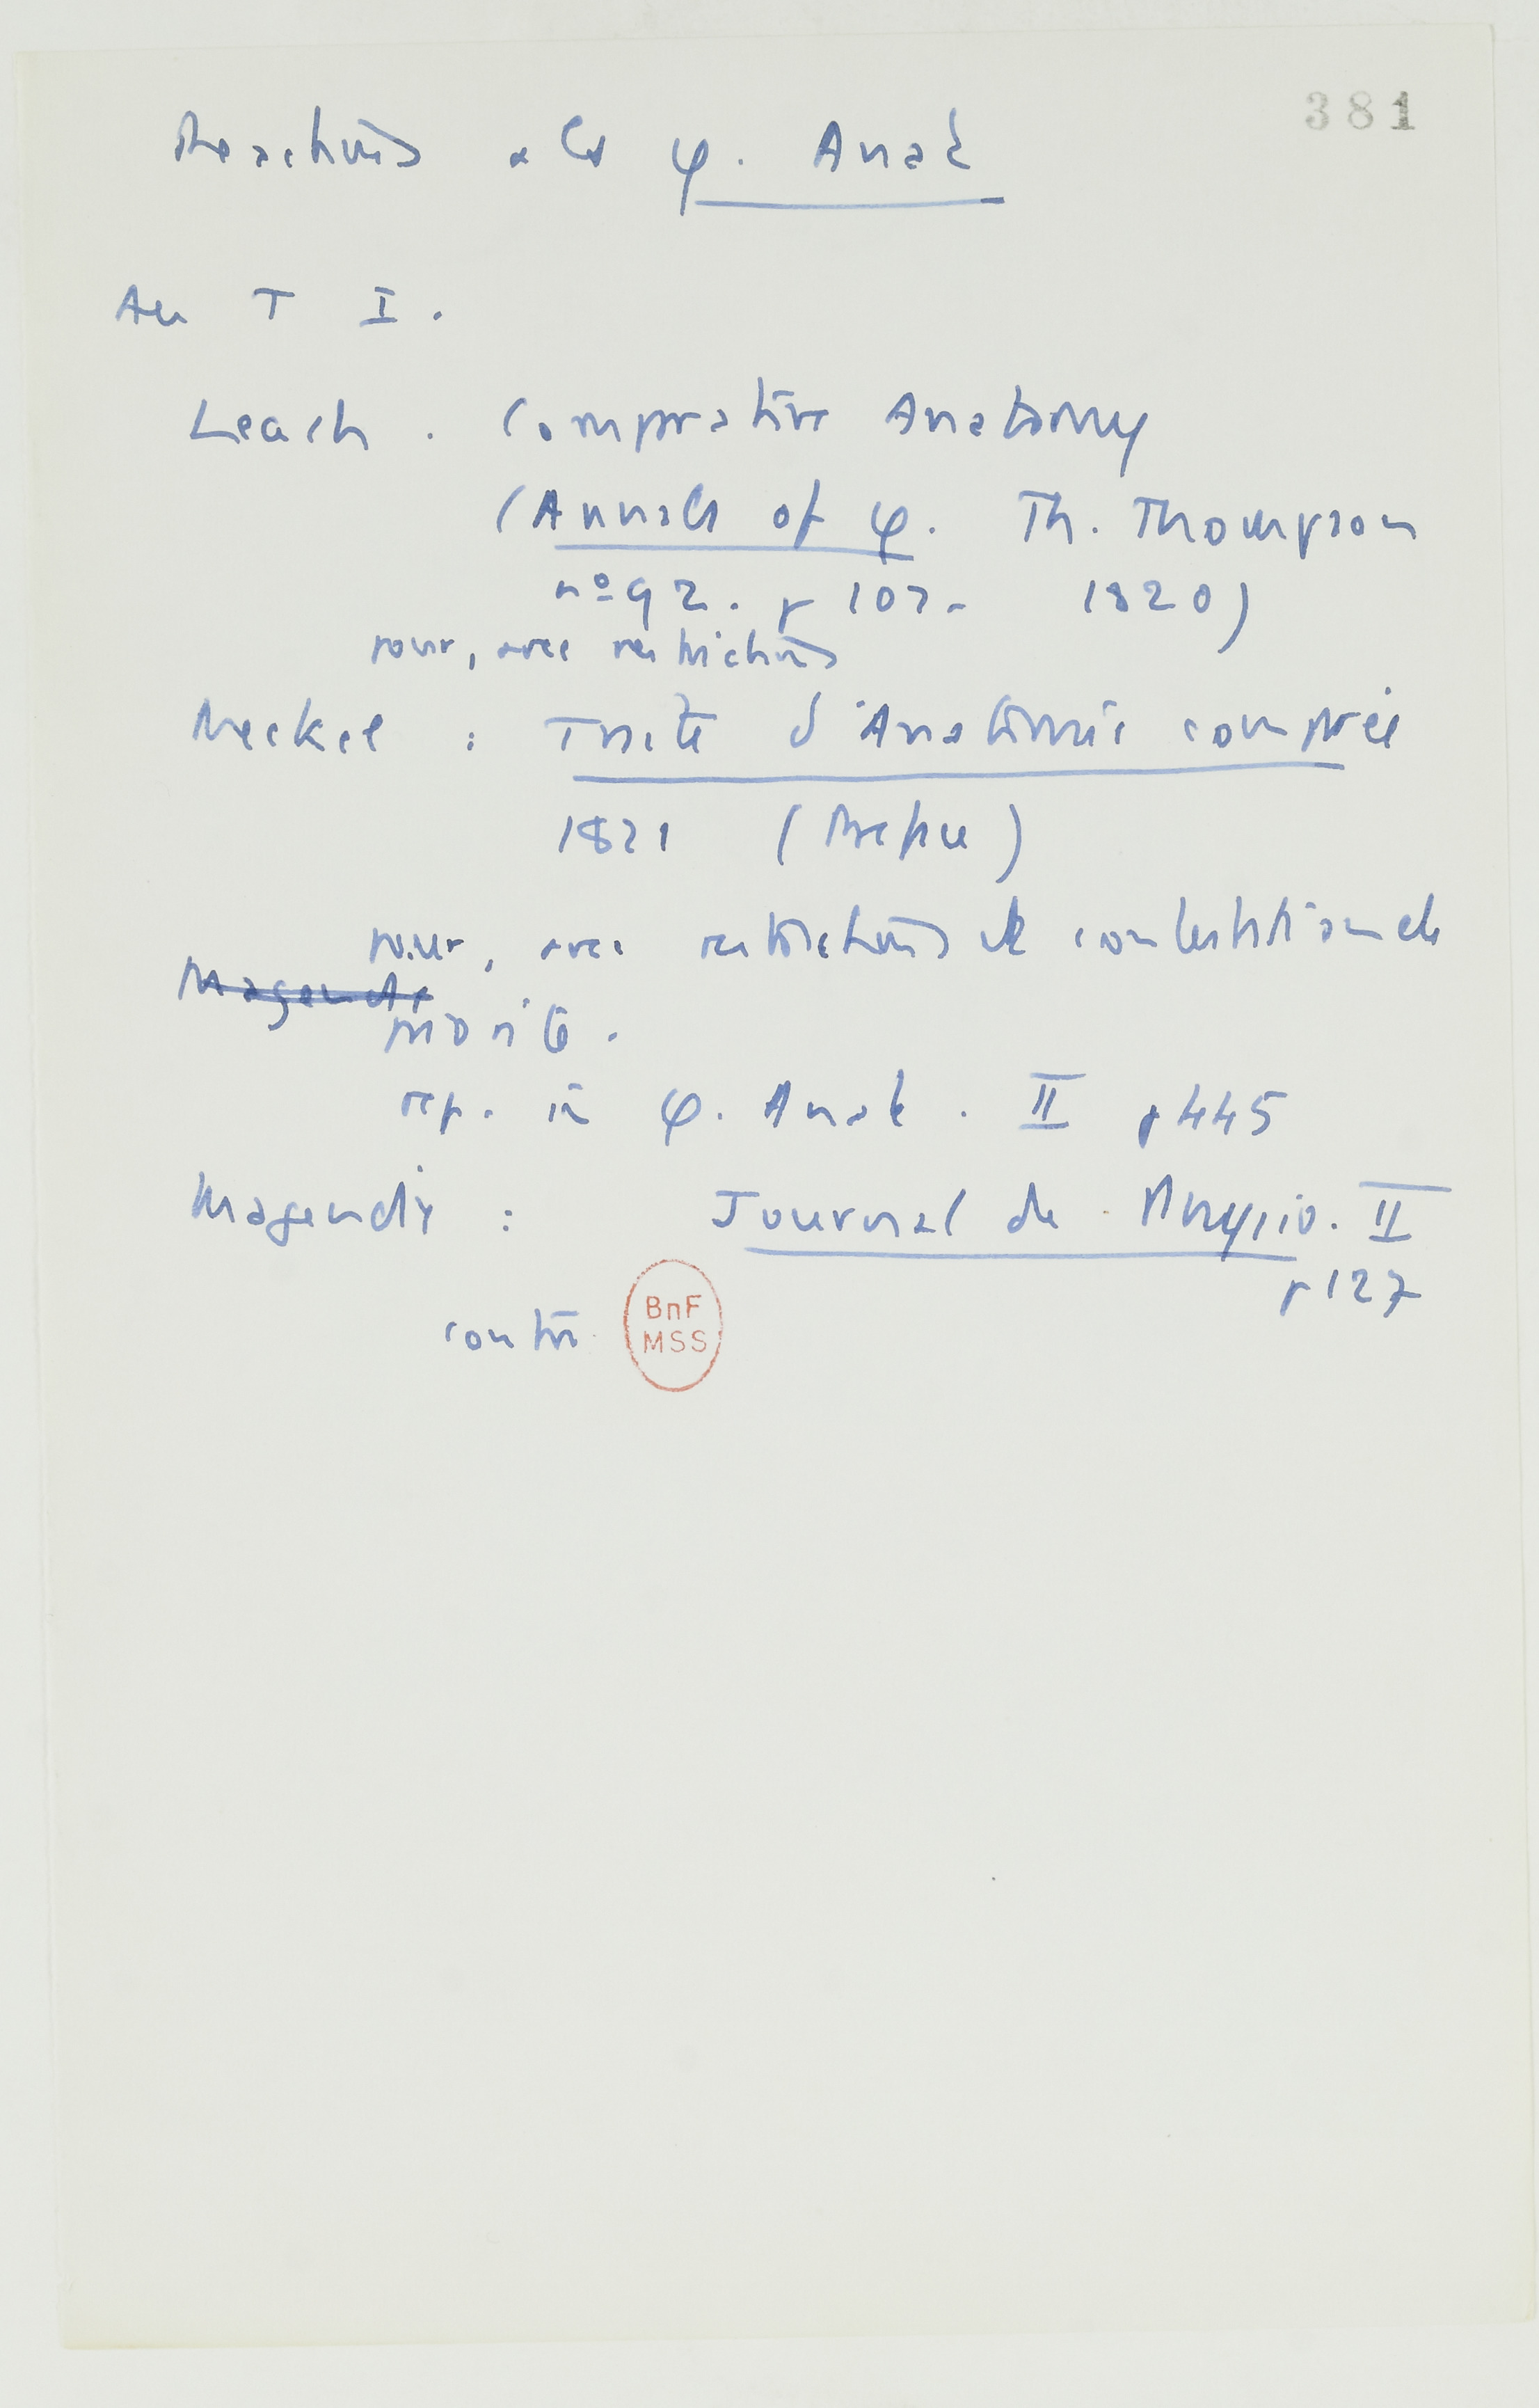 381
Réactions à la φ. Anat
Au T I.
Leach. Comparative Anatomy
(Annals of φ. Th. Thompson
nº 92. p 107. 1820)
pour, avec restrictions
Meckel : Traité d'Anatomie comparée
1821 (Préface)
pour, avec restrictions et contestation de
Magendie
priorité.
rep. in φ. Anat. II p 445
Magendie : Journal de Physio. II
p 127
contre
BnF
MSS